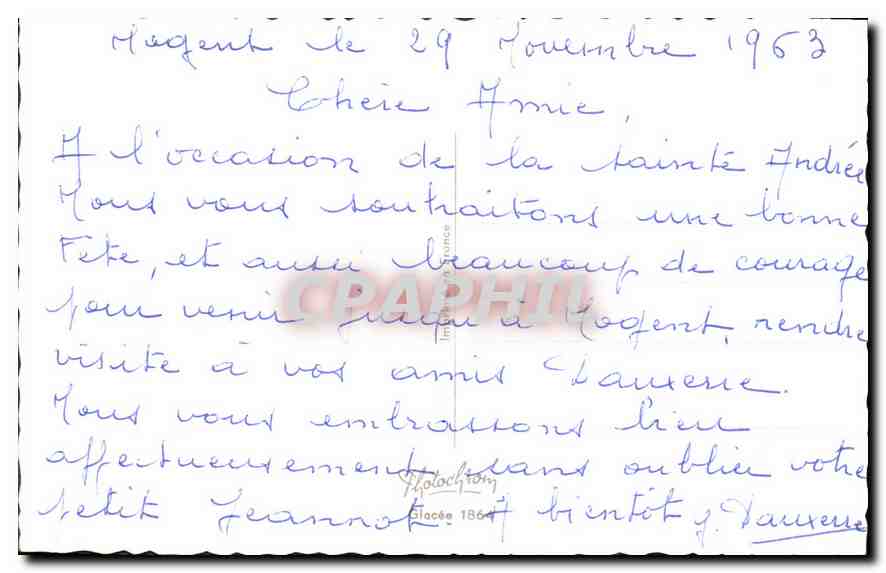 Nogent le 29 Novembre 1963
Chère Amie,
A l'occasion de la sainte Andrée
Nous vous souhaitons une bonne
Fête, et aussi beaucoup de courage
pour venir jusqu'à Nogent, rendre
visite à vos amis Dauxerre.
Nous vous embrassons bien
affectueusement sans oublier votre
petit Jeannot. A bientôt J. Dauxerre
Imprimé en France
CPAPHIL
Photochrom
Glacée 1864